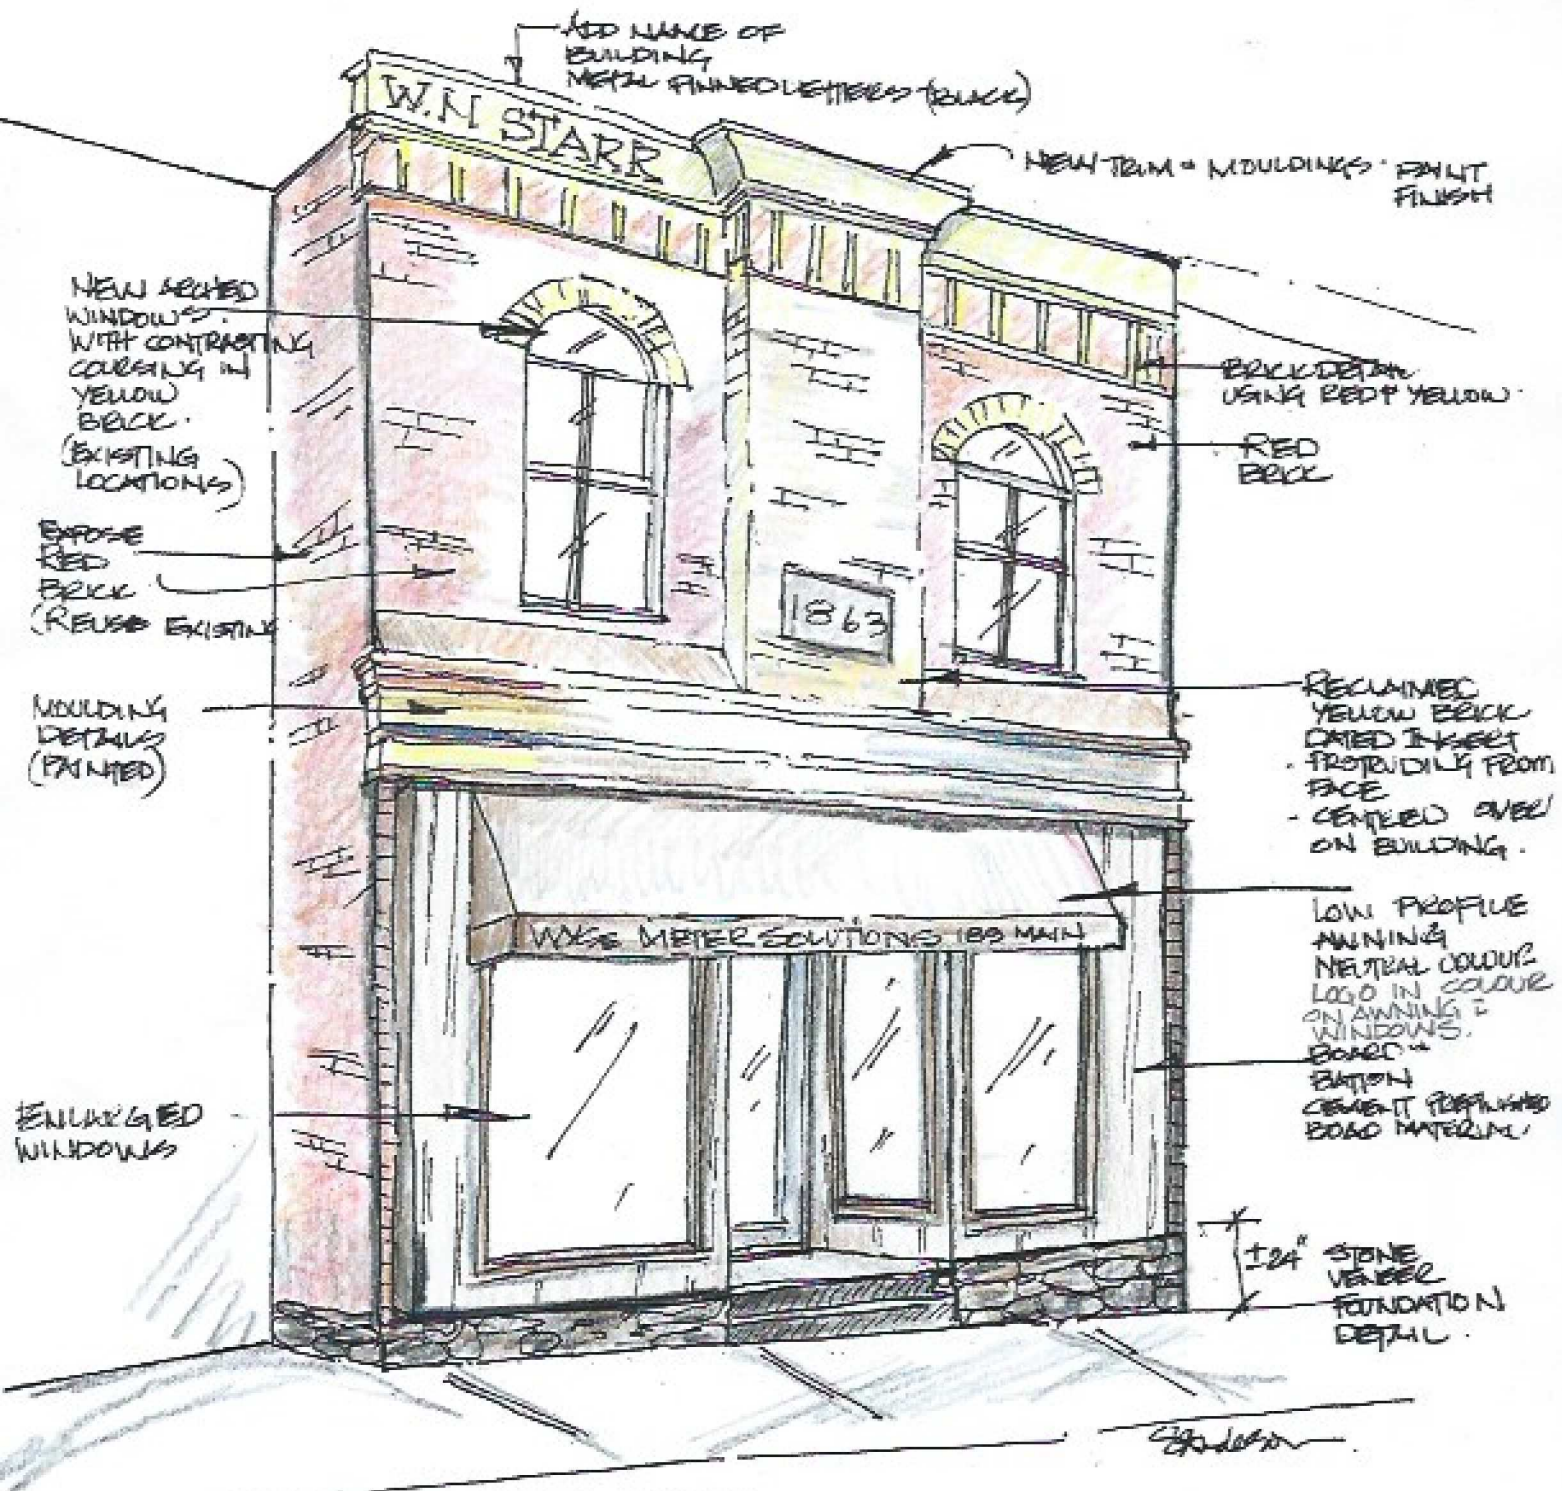 ADD NAME OF
BUILDING
METAL PINNED LETTERS (BLACK)
W.N STARR
NEW TRIM + MOULDINGS · PAINT
FINISH
NEW ARCHED
WINDOWS.
WITH CONTRASTING
COURSING IN
YELLOW
BRICK.
(EXISTING
LOCATIONS)
BRICK DETAIL
USING RED & YELLOW.
RED
BRICK
EXPOSE
RED
BRICK
(REUSE EXISTING
1863
MOULDING
DETAILS
(PAINTED)
RECLAIMED
YELLOW BRICK
DATED INSERT
- PROTRUDING FROM
FACE
- CENTERED OVER
ON BUILDING.
WISE METER SOLUTIONS 189 MAIN
LOW PROFILE
AWNING
NEUTRAL COLOUR
LOGO IN COLOUR
ON AWNING +
WINDOWS.
BOARD +
BATTON
CEMENT PREFINISHED
BOAD MATERIAL.
ENLARGED
WINDOWS
±24" STONE
VENEER
FOUNDATION
DETAIL.